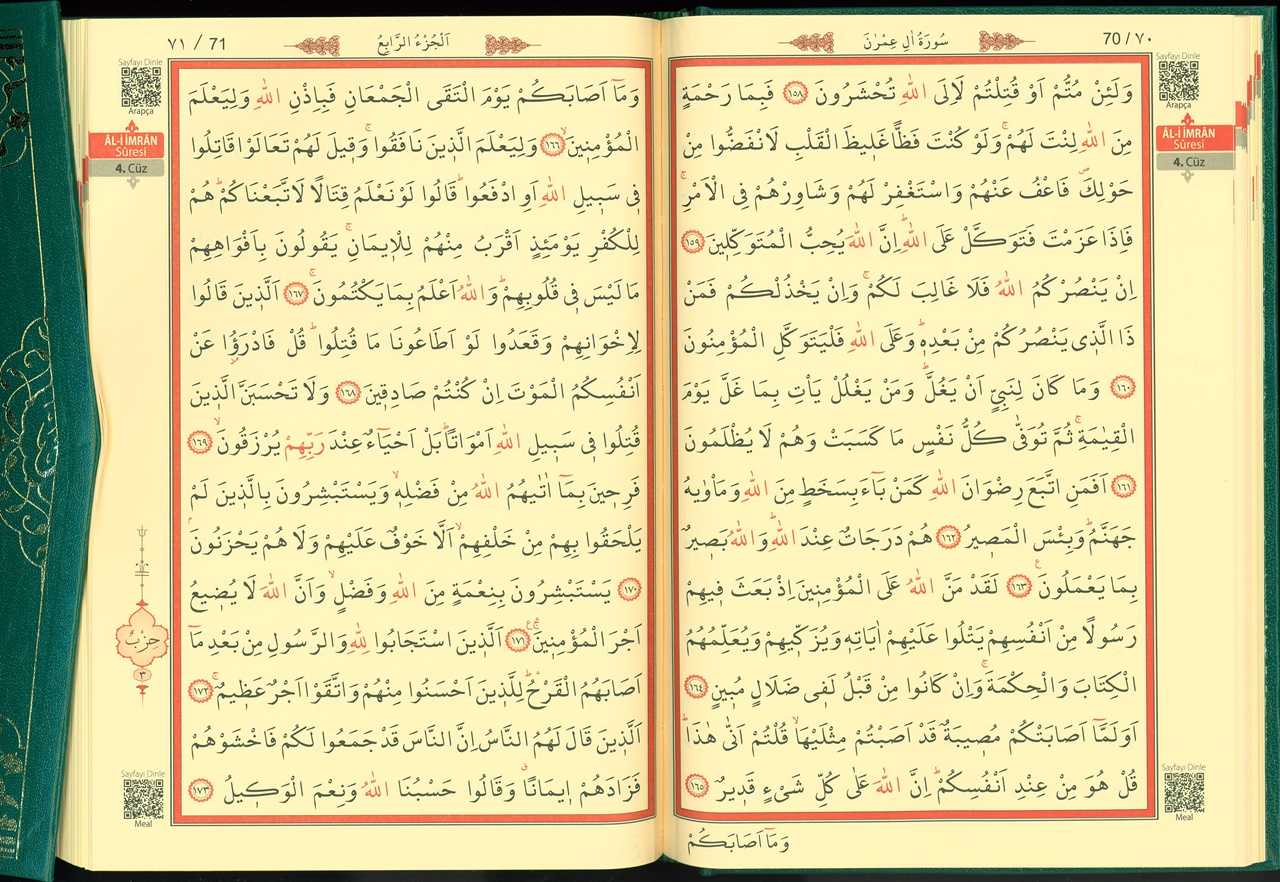 70 / ٧٠
سُورَةُ اٰلِ عِمْرٰنَ
Sayfayı Dinle
Arapça
ÂL-İ İMRÂN
Sûresi
4. Cüz
وَلَئِنْ مُتُّمْ اَوْ قُتِلْتُمْ لَاِلَى اللّٰهِ تُحْشَرُونَ ﴿١٥٨﴾ فَبِمَا رَحْمَةٍ
مِنَ اللّٰهِ لِنْتَ لَهُمْۚ وَلَوْ كُنْتَ فَظًّا غَلٖيظَ الْقَلْبِ لَانْفَضُّوا مِنْ
حَوْلِكَۖ فَاعْفُ عَنْهُمْ وَاسْتَغْفِرْ لَهُمْ وَشَاوِرْهُمْ فِى الْاَمْرِۚ
فَاِذَا عَزَمْتَ فَتَوَكَّلْ عَلَى اللّٰهِؕ اِنَّ اللّٰهَ يُحِبُّ الْمُتَوَكِّلٖينَ ﴿١٥٩﴾
اِنْ يَنْصُرْكُمُ اللّٰهُ فَلَا غَالِبَ لَكُمْۚ وَاِنْ يَخْذُلْكُمْ فَمَنْ
ذَا الَّذٖى يَنْصُرُكُمْ مِنْ بَعْدِهٖؕ وَعَلَى اللّٰهِ فَلْيَتَوَكَّلِ الْمُؤْمِنُونَ
﴿١٦٠﴾ وَمَا كَانَ لِنَبِىٍّ اَنْ يَغُلَّؕ وَمَنْ يَغْلُلْ يَأْتِ بِمَا غَلَّ يَوْمَ
الْقِيٰمَةِۚ ثُمَّ تُوَفّٰى كُلُّ نَفْسٍ مَا كَسَبَتْ وَهُمْ لَا يُظْلَمُونَ
﴿١٦١﴾ اَفَمَنِ اتَّبَعَ رِضْوَانَ اللّٰهِ كَمَنْ بَٓاءَ بِسَخَطٍ مِنَ اللّٰهِ وَمَأْوٰيهُ
جَهَنَّمُؕ وَبِئْسَ الْمَصٖيرُ ﴿١٦٢﴾ هُمْ دَرَجَاتٌ عِنْدَ اللّٰهِؕ وَاللّٰهُ بَصٖيرٌ
بِمَا يَعْمَلُونَ ﴿١٦٣﴾ لَقَدْ مَنَّ اللّٰهُ عَلَى الْمُؤْمِنٖينَ اِذْ بَعَثَ فٖيهِمْ
رَسُولًا مِنْ اَنْفُسِهِمْ يَتْلُوا عَلَيْهِمْ اٰيَاتِهٖ وَيُزَكّٖيهِمْ وَيُعَلِّمُهُمُ
الْكِتَابَ وَالْحِكْمَةَۚ وَاِنْ كَانُوا مِنْ قَبْلُ لَفٖى ضَلَالٍ مُبٖينٍ ﴿١٦٤﴾
اَوَلَمَّٓا اَصَابَتْكُمْ مُصٖيبَةٌ قَدْ اَصَبْتُمْ مِثْلَيْهَاۙ قُلْتُمْ اَنّٰى هٰذَاؕ
قُلْ هُوَ مِنْ عِنْدِ اَنْفُسِكُمْؕ اِنَّ اللّٰهَ عَلٰى كُلِّ شَیْءٍ قَدٖيرٌ ﴿١٦٥﴾
وَمَٓا اَصَابَكُمْ
Sayfayı Dinle
Meal
٧١ / 71
اَلْجُزْءُ الرَّابِعُ
Sayfayı Dinle
Arapça
ÂL-İ İMRÂN
Sûresi
4. Cüz
وَمَٓا اَصَابَكُمْ يَوْمَ الْتَقَى الْجَمْعَانِ فَبِاِذْنِ اللّٰهِ وَلِيَعْلَمَ
الْمُؤْمِنٖينَۙ ﴿١٦٦﴾ وَلِيَعْلَمَ الَّذٖينَ نَافَقُواۚ وَقٖيلَ لَهُمْ تَعَالَوْا قَاتِلُوا
فٖى سَبٖيلِ اللّٰهِ اَوِ ادْفَعُواؕ قَالُوا لَوْ نَعْلَمُ قِتَالًا لَاتَّبَعْنَاكُمْؕ هُمْ
لِلْكُفْرِ يَوْمَئِذٍ اَقْرَبُ مِنْهُمْ لِلْاٖيمَانِۚ يَقُولُونَ بِاَفْوَاهِهِمْ
مَا لَيْسَ فٖى قُلُوبِهِمْؕ وَاللّٰهُ اَعْلَمُ بِمَا يَكْتُمُونَۚ ﴿١٦٧﴾ اَلَّذٖينَ قَالُوا
لِاِخْوَانِهِمْ وَقَعَدُوا لَوْ اَطَاعُونَا مَا قُتِلُواؕ قُلْ فَادْرَؤُ۫ا عَنْ
اَنْفُسِكُمُ الْمَوْتَ اِنْ كُنْتُمْ صَادِقٖينَ ﴿١٦٨﴾ وَلَا تَحْسَبَنَّ الَّذٖينَ
قُتِلُوا فٖى سَبٖيلِ اللّٰهِ اَمْوَاتًاؕ بَلْ اَحْيَٓاءٌ عِنْدَ رَبِّهِمْ يُرْزَقُونَۙ ﴿١٦٩﴾
فَرِحٖينَ بِمَٓا اٰتٰيهُمُ اللّٰهُ مِنْ فَضْلِهٖۙ وَيَسْتَبْشِرُونَ بِالَّذٖينَ لَمْ
يَلْحَقُوا بِهِمْ مِنْ خَلْفِهِمْۙ اَلَّا خَوْفٌ عَلَيْهِمْ وَلَا هُمْ يَحْزَنُونَۘ
﴿١٧٠﴾ يَسْتَبْشِرُونَ بِنِعْمَةٍ مِنَ اللّٰهِ وَفَضْلٍۙ وَاَنَّ اللّٰهَ لَا يُضٖيعُ
اَجْرَ الْمُؤْمِنٖينَۚ ﴿١٧١﴾ اَلَّذٖينَ اسْتَجَابُوا لِلّٰهِ وَالرَّسُولِ مِنْ بَعْدِ مَٓا
اَصَابَهُمُ الْقَرْحُؕ لِلَّذٖينَ اَحْسَنُوا مِنْهُمْ وَاتَّقَوْا اَجْرٌ عَظٖيمٌۚ ﴿١٧٢﴾
اَلَّذٖينَ قَالَ لَهُمُ النَّاسُ اِنَّ النَّاسَ قَدْ جَمَعُوا لَكُمْ فَاخْشَوْهُمْ
فَزَادَهُمْ اٖيمَانًاۗ وَقَالُوا حَسْبُنَا اللّٰهُ وَنِعْمَ الْوَكٖيلُ ﴿١٧٣﴾
حِزْبٌ
٣
Sayfayı Dinle
Meal